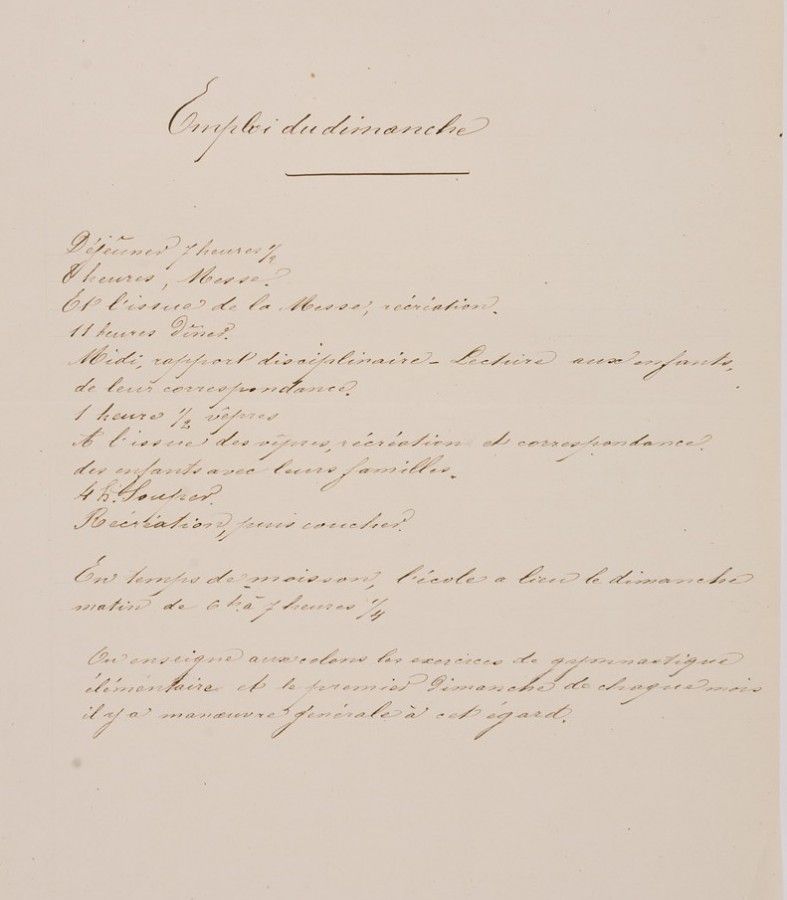 Emploi du dimanche
Déjeuner 7 heures 1/2
8 heures, Messe.
Et l'issue de la Messe, récréation.
11 heures Dîner.
Midi, rapport disciplinaire - Lecture aux enfants,
de leur correspondance.
1 heure 1/2 vêpres
A l'issue des vêpres, récréation et correspondance
des enfants avec leurs familles.
4 h. Souper.
Récréation, puis coucher.
En temps de moisson, l'école a lieu le dimanche
matin de 6 h. à 7 heures 1/4
On enseigne aux colons les exercices de gymnastique
élémentaire et le premier Dimanche de chaque mois
il y a manœuvre générale à cet égard.